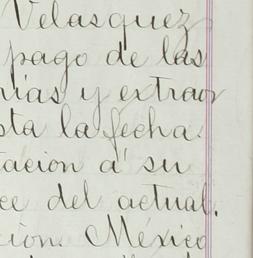 Velasquez
pago de las
rias y extraor
sta la fecha
tacion á su
ce del actual.
cion. México